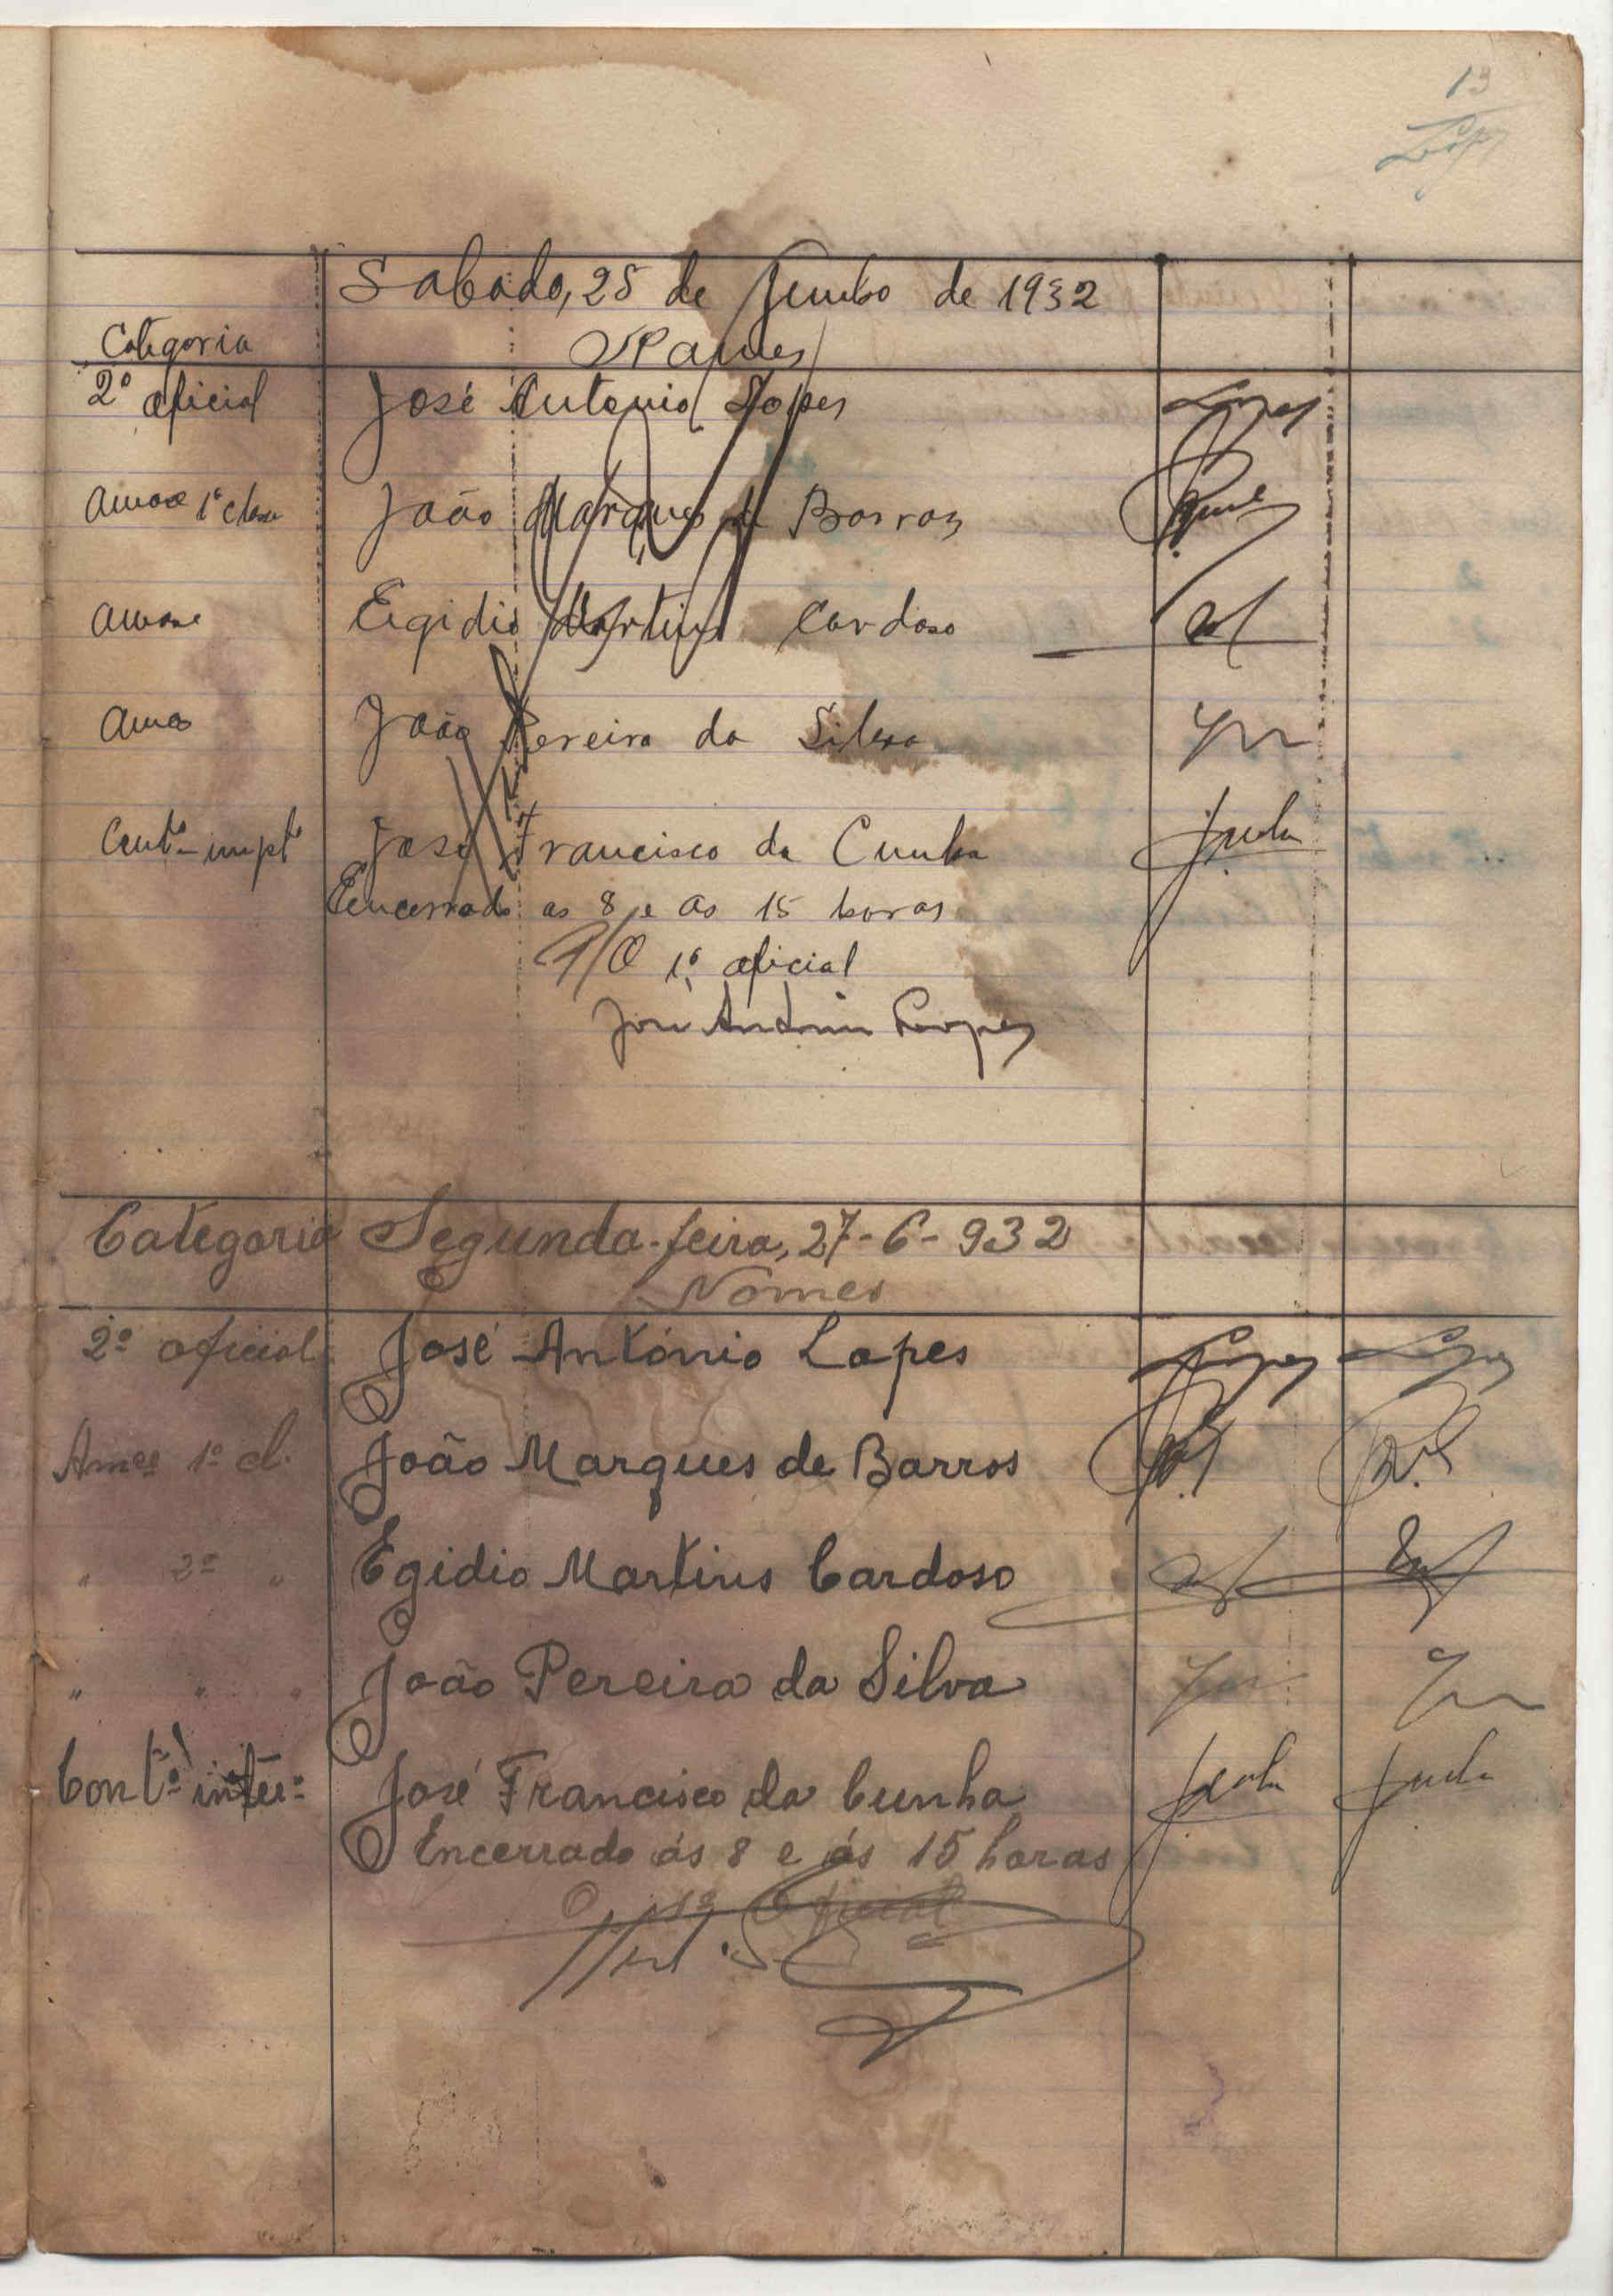 13
Lopes
Sabado, 25 de Junho de 1932
Categoria Nomes
2º oficial José Antonio Lopes Lopes
1ª classe João Marques de Barros
Egidio Martins Cardoso
João Pereira da Silva
José Francisco da Cunha Cunha
Eencerrado as 8 e as 15 horas
P/O 1º oficial
José António Lopes
Categoria Segunda-feira, 27-6-932
Nomes
2º oficial José António Lopes Lopes Lopes
Amos 1ª cl. João Marques de Barros
" 2ª " Egidio Martins Cardoso
" " " João Pereira da Silva
Contº José Francisco da Cunha Cunha Cunha
Encerrado ás 8 e ás 15 horas
O 1º Oficial